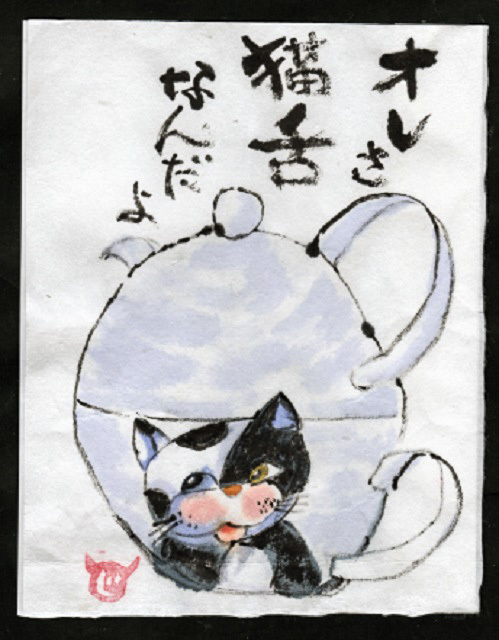 オレさ
猫舌
なんだ
よ